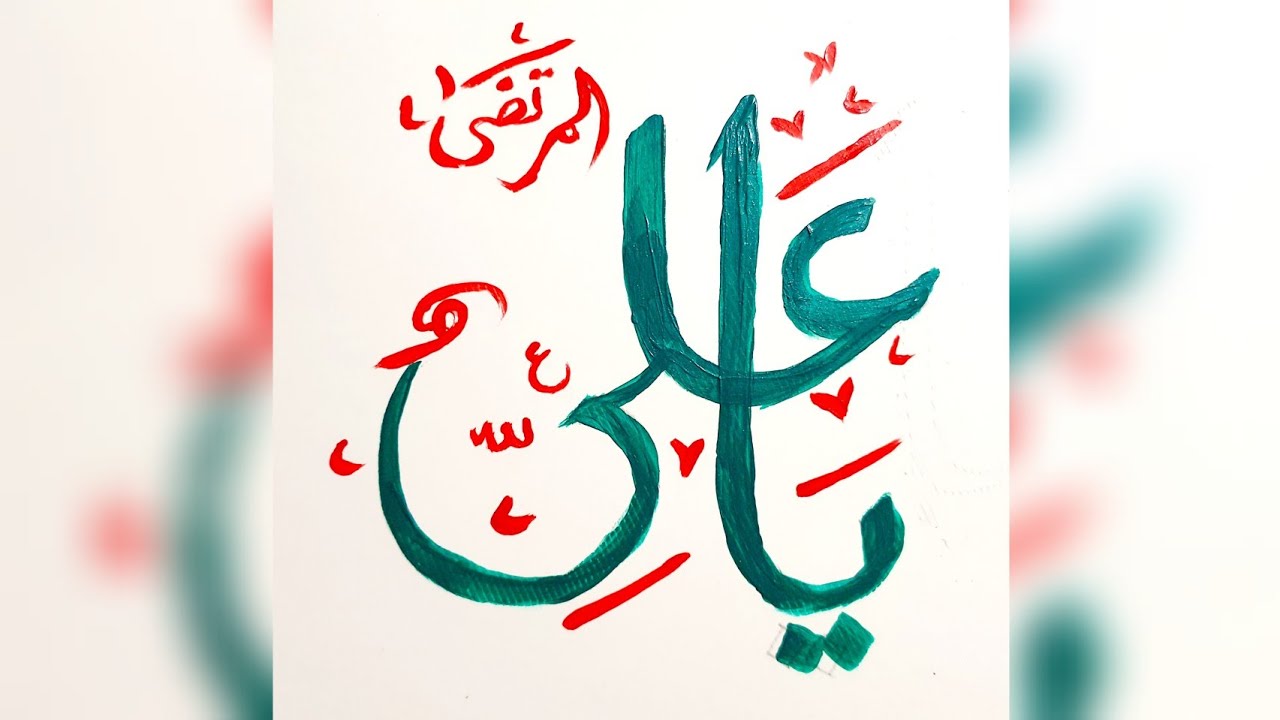 یا علی
المرتضیٰ